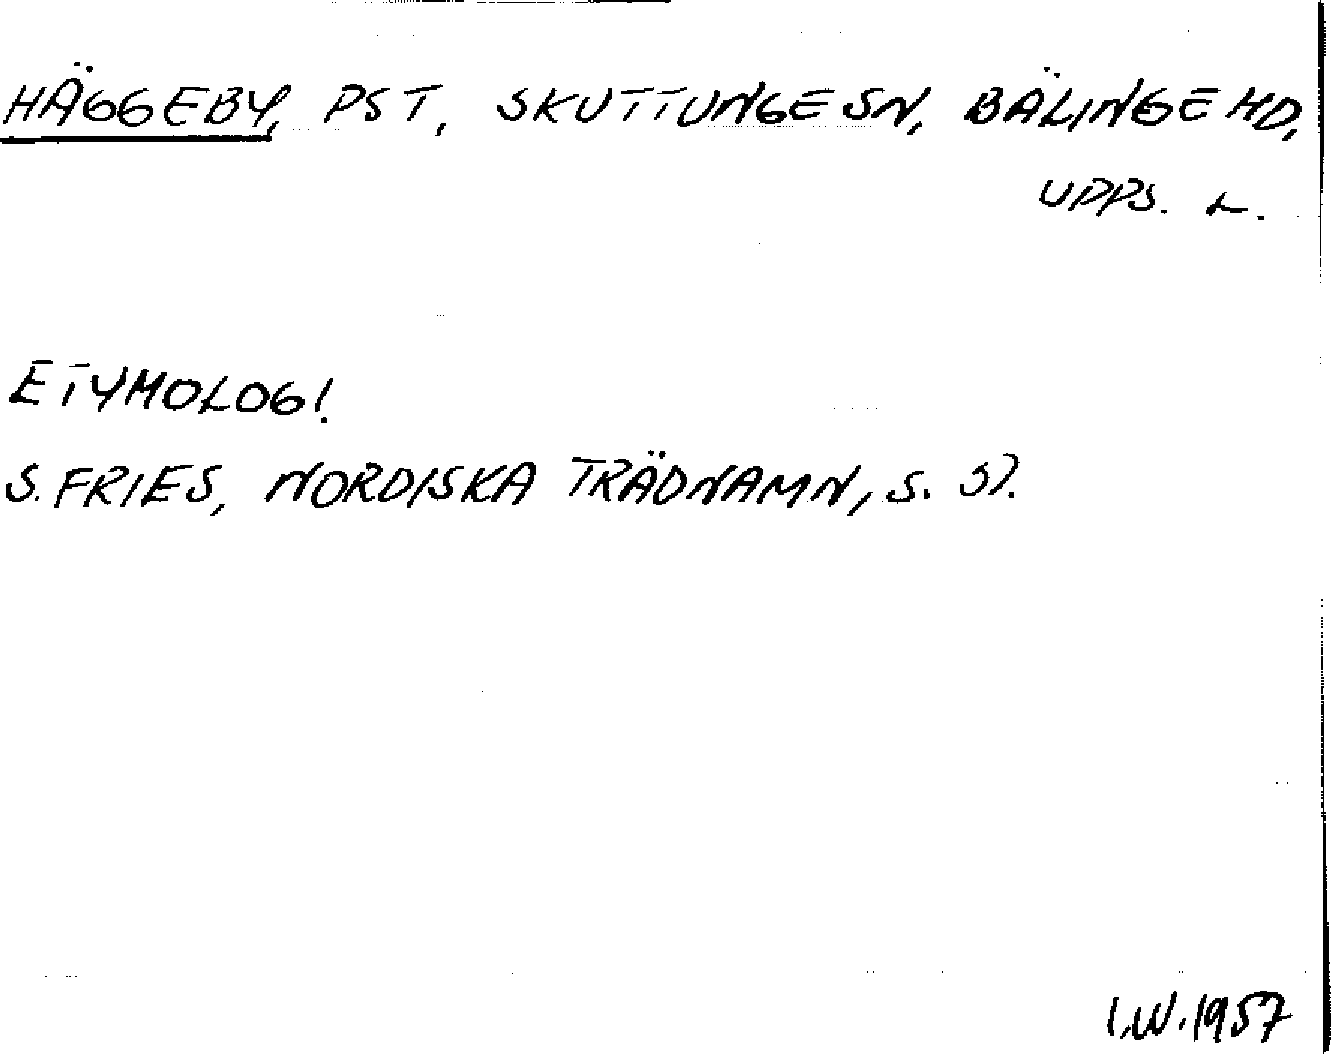 HÄGGEBY, PST, SKUTTUNGE SN, BÄLINGE HD,
UPPS. L.
ETYMOLOGI.
S. FRIES, NORDISKA TRÄDNAMN, S.
I.W. 1957